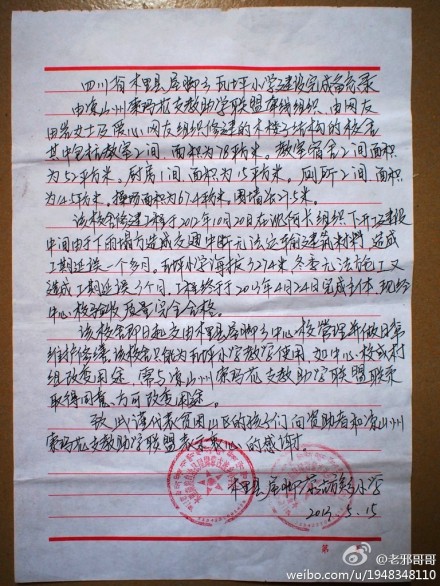 四川省木里县屋脚乡瓦坪小学建设完成备忘录
由凉山州索玛花支教助学联盟牵线组织,由网友
田岩女士及爱心网友组织修建的木楼子结构的校舍
其中包括教室2间,面积为78平方米。教室宿舍2间面积
为52平方米,厨房1间,面积为15平方米。厕所2间,面积
为14.5平方米。操场面积674平方米。围墙长27.5米。
该校舍修建工程于2012年10月20日在 组织下开工建设
中间由于下雨塌方造成交通中断无法运输建筑材料,造成
工期延误一个多月。 小学海拔3274米,冬季无法施工又
造成工期延误3个月,工程终于2013年4月24日完成主体,现经
中心校验收质量完全合格。
该校舍即日起交由木里县屋脚乡中心校管理并做日常
维护修缮,该校舍只能为 小学教学使用,如中心校或村
组改变用途,需与凉山州索玛花支教助学联盟联系
取得同意方可改变用途。
致此谨代表贫困山区的孩子们向资助者和凉山州
索玛花支教助学联盟表示衷心的感谢
木里县屋脚 小学
2013.5.15
第
@老邪哥哥
weibo.com/u/1948348110